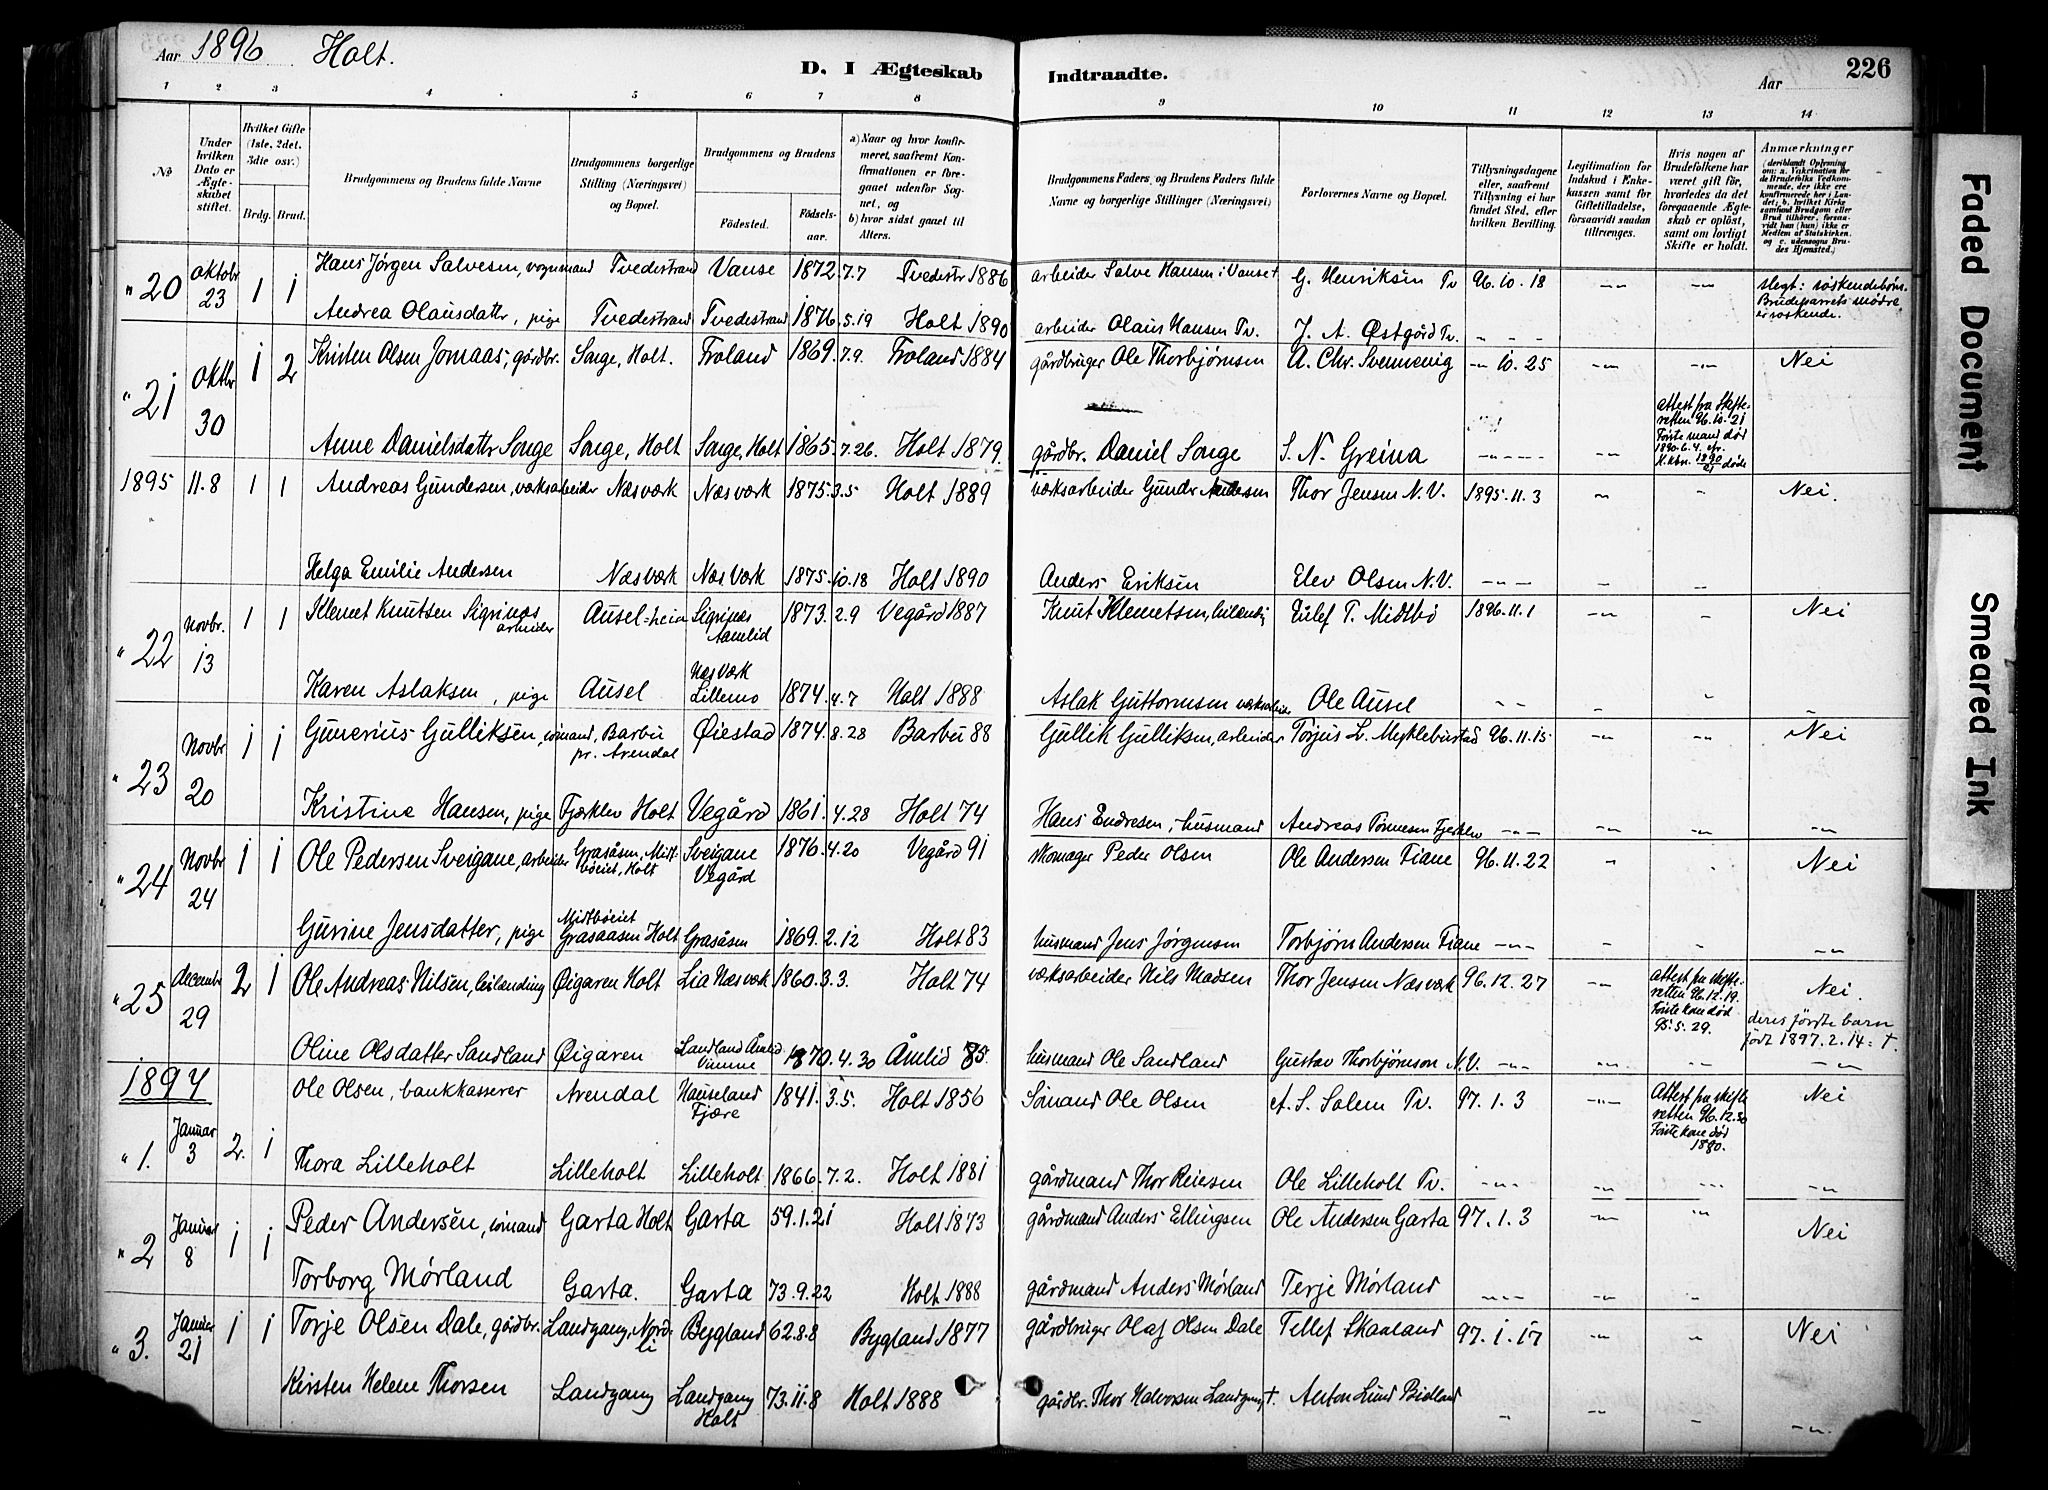 Aar 1896 Holt.
D. I Ægteskab Indtraadte.
Aar
226
1 2 3 4 5 6 7 8 9 10 11 12 13 14
No
Under hvilken Dato er Ægteskabet stiftet.
Hvilket Gifte (1ste, 2det, 3die osv.)
Brdg. Brud.
Brudgommens og Brudens fulde Navne
Brudgommens borgerlige Stilling (Næringsvei) og Bopæl.
Brudgommens og Brudens
Födested.
Födselsaar.
a) Naar og hvor konfirmeret, saafremt Konfirmationen er foregaaet udenfor Sognet, og
b) hvor sidst gaaet til Alters.
Brudgommens Faders og Brudens Faders fulde Navne og borgerlige Stillinger (Næringsvei)
Forlovernes Navne og Bopæl.
Tillysningsdagene eller, saafremt Tillysning ei har fundet Sted, efter hvilken Bevilling.
Legitimation for Indskud i Enkekassen samt for Giftetilladelse, forsaavidt saadan tiltrænges.
Hvis nogen af Brudefolkene har været gift för, hvorledes da det foregaaende Ægteskab er oplöst, samt om lovligt Skifte er holdt.
Anmærkninger (deriblandt Oplysning om: a. Vakcination for de Brudefolks Vedkommende, der ikke ere konfirmerede her i Landet; b. hvilket Kirkesamfund Brudgom eller Brud tilhører, forsaavidt han (hun) ikke er Medlem af Statskirken, og c. udensogns Brudes Hjemsted.
" 20 oktobr 23 1 1 Hans Jörgen Salvesen, vognmand Tvedestrand Vanse 1872.7.7 Tvedestr 1886 arbeider Salve Hansen i Vanse † G. Henriksen Tv 96.10.18 -"- -"- slegt: söskendebörn. Brudeparrets mödre er söskende.
Andrea Olausdattr, pige Tvedestrand Tvedestrand 1876.5.19 Holt 1890 arbeider Olaus Hansen Tv. J. A. Østgård Tv. - - -
" 21 Oktbr 30 1 2 Kristen Olsen Jomaas, gårdbr. Songe, Holt. Froland 1869.7.9. Froland 1884 gårdbruger Ole Thorbjørnsen A. Chr. Svennevig -"- 10.25 -"- -"- Nei
attest fra skifteretten 96.10.21 Förste mand död 1890.6.4. efr. M.kbn. 1890 21 döde
Anne Danielsdatter Songe Songe, Holt Songe, Holt 1865.7.26. Holt 1879. gårdbr. Daniel Songe S. N. Greina -"-"- -"-
1895 11.8 1 1 Andreas Gundersen, værksarbeider Næsværk Næsværk 1875.3.5 Holt 1889 værksarbeider Gunder Andersen Thor Jensen N.V. 1895.11.3 -"- " Nei.
Helga Emilie Andersen Næsværk Næsværk 1875.10.18 Holt 1890 Anders Eriksen Elev Olsen N.V. -"-
" 22 novbr. 13 1 1 Klemet Knutsen Sigrinæs arbeider Ausel=heia Sigrinæs Aamlid 1873.2.9 Vegård 1887 Knut Klemetsen, leilænding Tulef T. Midtbö 1896.11.1 -"- Nei
Karen Aslaksen, pige Ausel Næsværk Lillemo 1874.4.7 Holt 1888 Aslak Guttormsen værksarbeider Ole Ausel -"-
" 23 Novbr 20 1 1 Gunerius Gulliksen, sömand, Barbu pr. Arendal Øiestad 1874.8.28 Barbu 88 Gullik Gulliksen, arbeider Torjus L. Mykleburstad 96.11.15 -"- -"- Nei
Kristine Hansen, pige Fjæklev Holt Vegård 1861.4.28 Holt 74 Hans Endresen, husmand Andreas Tönnesen Fjeklev -"- -"- -"- -"-
" 24 Novbr 24 1 1 Ole Pedersen Sveigane, arbeider Gråsåsen, Midtbøeiet, Holt Sveigane Vegård 1876.4.20 Vegård 91 skomager Peder Olsen Ole Andersen Fiane 96.11.22 " " Nei
Gurine Jensdatter, pige Midtbøeiet Grasaasen Holt Grasåsen 1869.2.12 Holt 83 husmand Jens Jörgensen Torbjörn Andersen Fiane -"- -"-
" 25 decembr 29 2 1 Ole Andreas Nilsen, leilending Øigaren Holt Lia Næsværk 1860.3.3. Holt 74 værksarbeider Nils Madsen Thor Jensen Næsværk 96.12.27 -"- attest fra skifteretten 96.12.19. Förste kone död 95.5.29. Nei.
deres förste barn födt 1897.2.14 = †.
Oline Olsdatter Sandland Øigaren Sandland Åmlid 1870.4.30 Åmlid 85. husmand Ole Sandland Gustav Thorbjörnson N.V. -"- -"- -"- -"-
1897
" 1. Januar 3 2. 1 Ole Olsen, bankkasserer Arendal Hauseland Fjære 1841.3.5. Holt 1856 Sömand Ole Olsen A. S. Solem Tv. 97.1.3 -"- Attest fra skifteretten 96.12.30 Förste kone död 1890. Nei
Thora Lilleholt Lilleholt Lilleholt 1866.7.2. Holt 1881 gårdmand Thor Reiersen Ole Lilleholt Tv. -"- -"- -"- -"-
" 2 Januar 8 1 1 Peder Andersen, sömand Garta Holt Garta 59.1.21 Holt 1873 gårdmand Anders Ellingsen Ole Andersen Garta 97.1.3 -"- -"- Nei
Torborg Mørland Garta. Garta 73.9.22 Holt 1888 gårdmand Anders Mørland Terje Mørland -"- -"-
" 3. Januar 21 1 1 Torje Olsen Dale, gårdbr. Landgang, Nordli Bygland 62.8.8 Bygland 1877 gårdbruger Olaf Olsen Dale Tellef Skaaland 97.1.17 -"- " Nei
Kirsten Helene Thorsen Landgang Landgang Holt 73.11.8 Holt 1888 gårdbr. Thor Halvorsen Landgang † Anton Lund Bidland " -"- " -"-
Faded Document
Smeared Ink